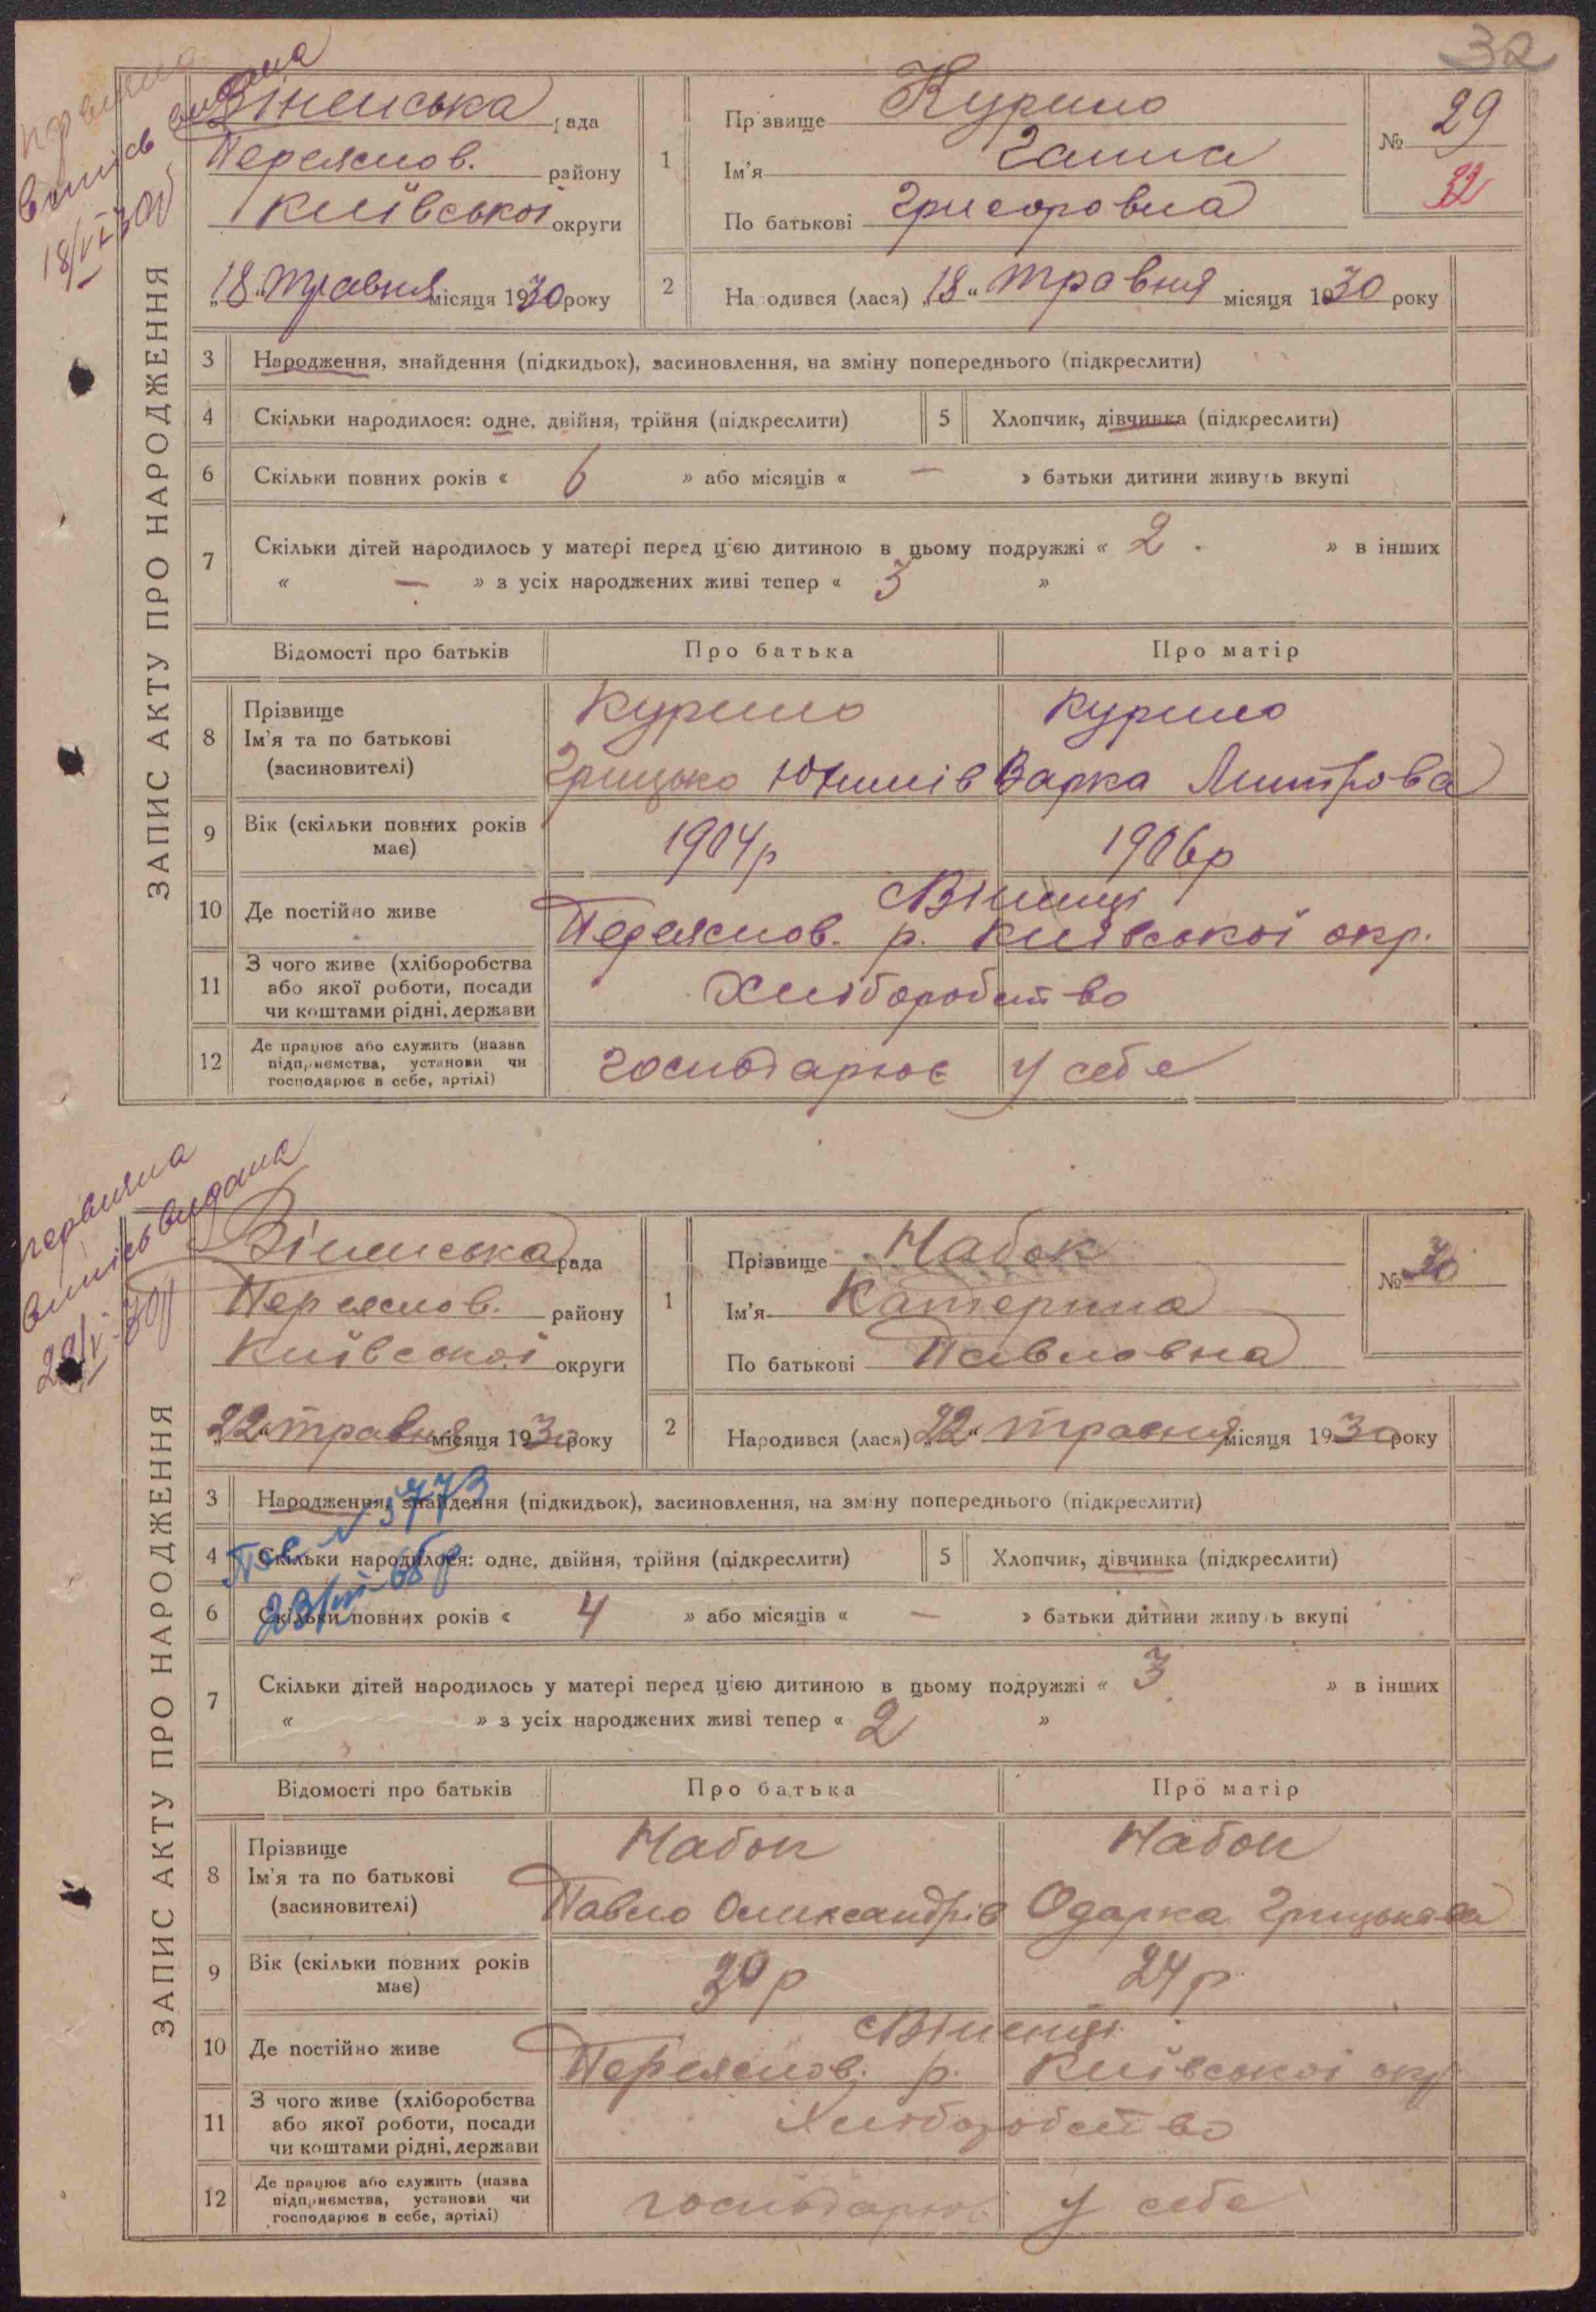 32
видана
виписъ
18/VI 30р
ЗАПИС АКТУ ПРО НАРОДЖЕННЯ
Віненська рада
Переяслов. району
Київської округи
„18“ травня місяця 1930 року
1
Прізвище Курило
Ім'я Ганна
По батькові Григоровна
№ 29
32
2
Народився (лася) „18“ травня місяця 1930 року
3 Народження, знайдення (підкидьок), засиновлення, на зміну попереднього (підкреслити)
4 Скільки народилося: одне, двійня, трійня (підкреслити)
5 Хлопчик, дівчинка (підкреслити)
6 Скільки повних років « 6 » або місяців « — » батьки дитини живуть вкупі
7 Скільки дітей народилось у матері перед ц'єю дитиною в цьому подружжі « 2 » в інших
« — » з усіх народжених живі тепер « 3 »
Відомості про батьків Про батька Про матір
8 Прізвище
Ім'я та по батькові
(засиновителі)
Курило Курило
Грицько Юхимів Варка Митрова
9 Вік (скільки повних років
має)
1904р 1906р
10 Де постійно живе
с Вінинці
Переяслов. р. Київської окр.
11 З чого живе (хліборобства
або якої роботи, посади
чи коштами рідні, держави
Хліборобство
12 Де працює або служить (назва
підприємства, установи чи
господарює в себе, артілі)
господарює у себе
первична
випись видана
22/V-30р
ЗАПИС АКТУ ПРО НАРОДЖЕННЯ
Віненська рада
Переяслов. району
Київської округи
„22“ травня місяця 1930 року
1
Прізвище Набок
Ім'я Катерина
По батькові Павловна
№ 30
2
Народився (лася) „22“ травня місяця 1930 року
3 Народження, знайдення (підкидьок), засиновлення, на зміну попереднього (підкреслити)
4 Скільки народилося: одне, двійня, трійня (підкреслити)
5 Хлопчик, дівчинка (підкреслити)
6 Скільки повних років « 4 » або місяців « — » батьки дитини живуть вкупі
7 Скільки дітей народилось у матері перед ц'єю дитиною в цьому подружжі « 3 » в інших
« » з усіх народжених живі тепер « 2 »
Відомості про батьків Про батька Про матір
8 Прізвище
Ім'я та по батькові
(засиновителі)
Набок Набок
Павло Олександрів Одарка Грицькова
9 Вік (скільки повних років
має)
30 р 24 р
10 Де постійно живе
с Віненці
Переяслов. р. Київської окр
11 З чого живе (хліборобства
або якої роботи, посади
чи коштами рідні, держави
Хліборобство
12 Де працює або служить (назва
підприємства, установи чи
господарює в себе, артілі)
господарює у себе